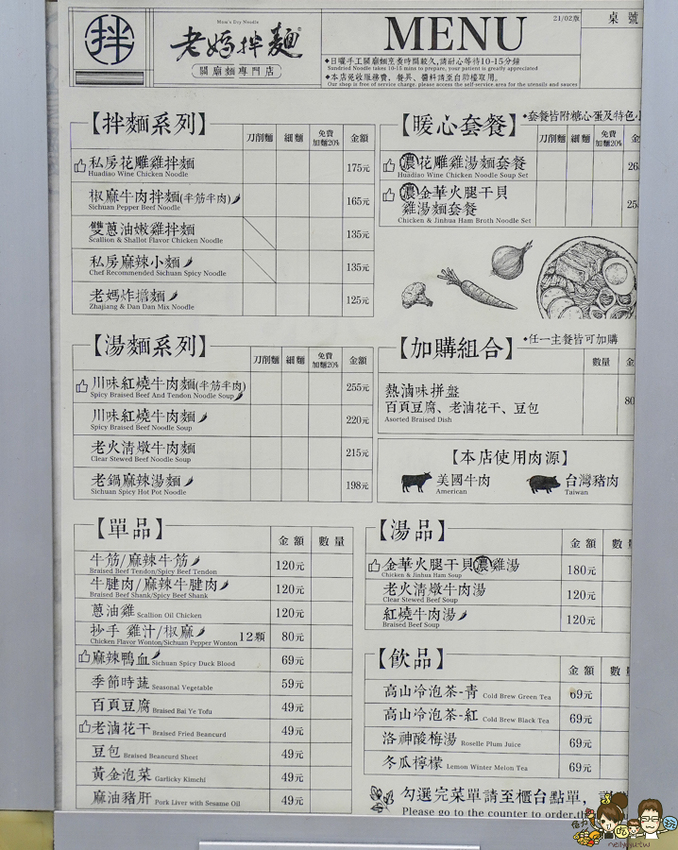 拌
Mom's Dry Noodle
老媽拌麵
關廟麵專門店
MENU
21/02版
桌號
◆日曬手工關廟麵烹煮時間較久,請耐心等待10-15分鐘
Sundried Noodle takes 10-15 mins to prepare, your patient is greatly appreciated
◆本店免收服務費，餐具、醬料請至自助檯取用。
Our shop is free of service charge, please access the self-service area for the utensils and sauces
【拌麵系列】
刀削麵 細麵 免費加麵20% 金額
私房花雕雞拌麵 175元
Huadiao Wine Chicken Noodle
椒麻牛肉拌麵(半筋半肉) 165元
Sichuan Pepper Beef Noodle
雙蔥油嫩雞拌麵 135元
Scallion & Shallot Flavor Chicken Noodle
私房麻辣小麵 135元
Chef Recommended Sichuan Spicy Noodle
老媽炸擔麵 125元
Zhajiang & Dan Dan Mix Noodle
【暖心套餐】 ◆套餐皆附糖心蛋及特色小
刀削麵 細麵 免費加麵20% 金
濃花雕雞湯麵套餐
Huadiao Wine Chicken Noodle Soup Set
濃金華火腿干貝
雞湯麵套餐
Chicken & Jinhua Ham Broth Noodle Set
【湯麵系列】
刀削麵 細麵 免費加麵20% 金額
川味紅燒牛肉麵(半筋半肉) 255元
Spicy Braised Beef And Tendon Noodle Soup
川味紅燒牛肉麵 220元
Spicy Braised Beef Noodle Soup
老火清燉牛肉麵 215元
Clear Stewed Beef Noodle Soup
老鍋麻辣湯麵 198元
Sichuan Spicy Hot Pot Noodle
【加購組合】 ◆任一主餐皆可加購
數量 金
熱滷味拼盤
百頁豆腐、老滷花干、豆包 80
Asorted Braised Dish
【本店使用肉源】
美國牛肉
American
台灣豬肉
Taiwan
【單品】
金額 數量
牛筋/麻辣牛筋 120元
Braised Beef Tendon/Spicy Beef Tendon
牛腱肉/麻辣牛腱肉 120元
Braised Beef Shank/Spicy Beef Shank
蔥油雞 Scallion Oil Chicken 120元
抄手 雞汁/椒麻 12顆 80元
Chicken Flavor Wonton/Sichuan Pepper Wonton
麻辣鴨血 Sichuan Spicy Duck Blood 69元
季節時蔬 Seasonal Vegetable 59元
百頁豆腐 Braised Bai Ye Tofu 49元
老滷花干 Braised Fried Beancurd 49元
豆包 Braised Beancurd Sheet 49元
黃金泡菜 Garlicky Kimchi 49元
麻油豬肝 Pork Liver with Sesame Oil 49元
【湯品】
金額 數
金華火腿干貝濃雞湯 180元
Chicken & Jinhua Ham Soup
老火清燉牛肉湯 120元
Clear Stewed Beef Soup
紅燒牛肉湯 120元
Braised Beef Soup
【飲品】
金額 數
高山冷泡茶-青 Cold Brew Green Tea 69元
高山冷泡茶-紅 Cold Brew Black Tea 69元
洛神酸梅湯 Roselle Plum Juice 69元
冬瓜檸檬 Lemon Winter Melon Tea 69元
勾選完菜單請至櫃台點單，
Please go to the counter to order,